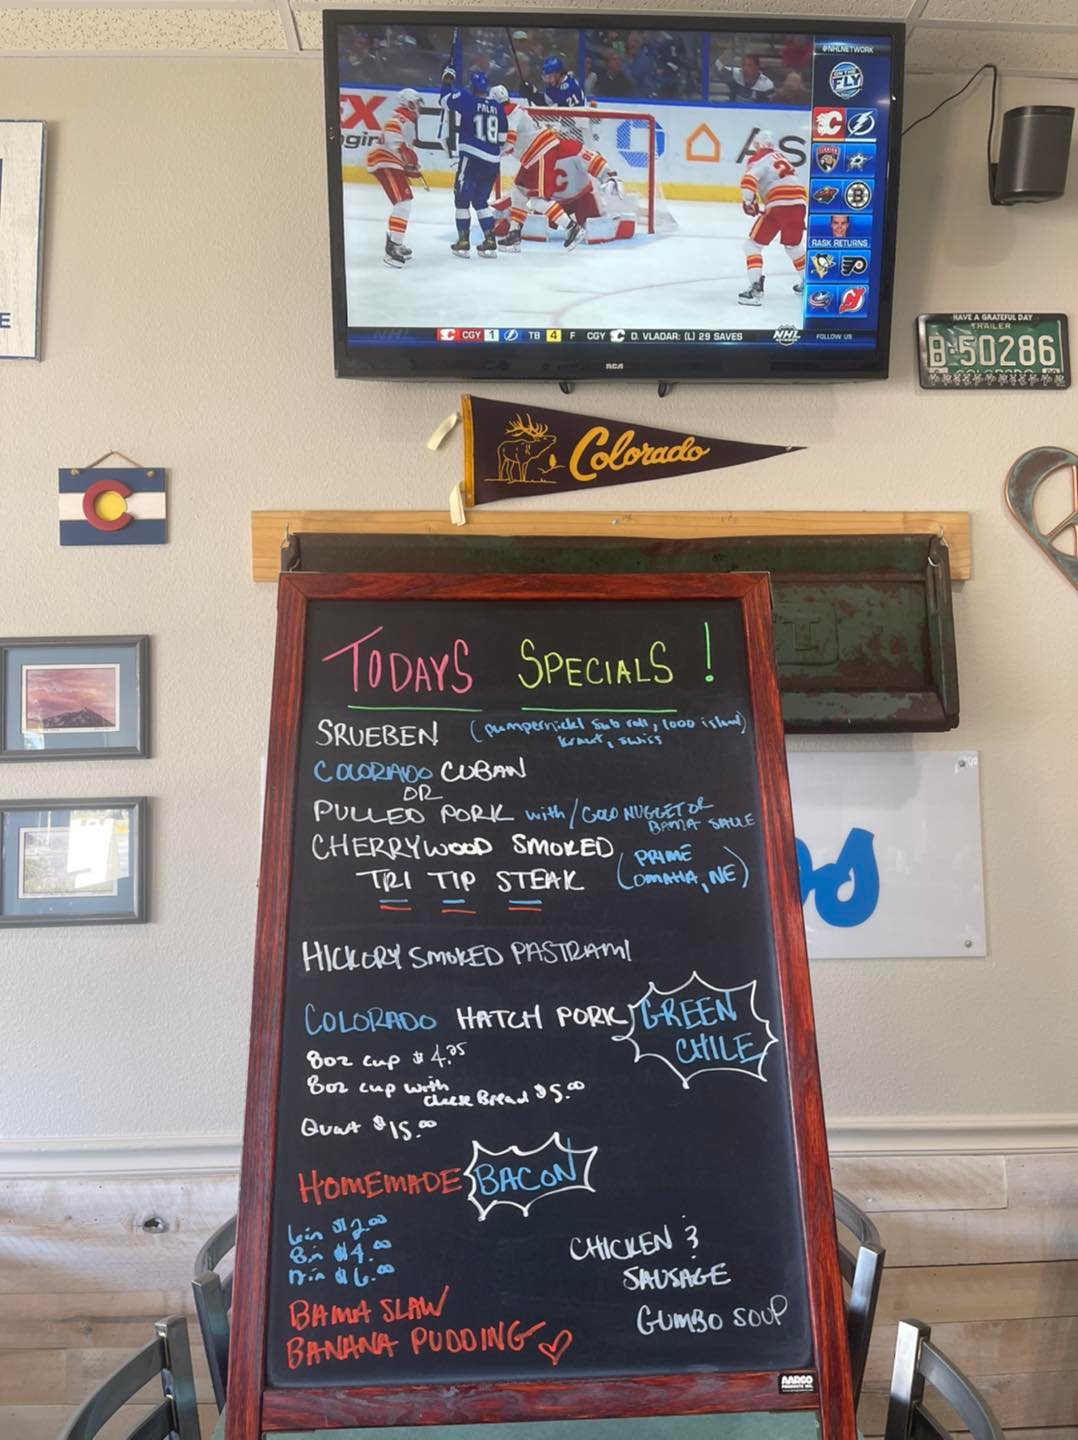 @NHLNETWORK
ON THE FLY
PALAT
18
21
2
RASK RETURNS
CGY 1 TB 4 F CGY D. VLADAR: (L) 29 SAVES
NHL
NETWORK
FOLLOW US
RCA
HAVE A GRATEFUL DAY
TRAILER
B-50286
COLORADO
Colorado
E
TODAYS SPECIALS!
SRUEBEN (pumpernickl sub roll, 1000 island,
kraut, swiss)
COLORADO CUBAN
OR
PULLED PORK with / GOLD NUGGET OR
BAMA SAUCE
CHERRYWOOD SMOKED
TRI TIP STEAK (PRIME
OMAHA, NE)
HICKORY SMOKED PASTRAMI
COLORADO HATCH PORK GREEN
CHILE
8oz cup $4.25
8oz cup with
cheese Bread $5.00
Quart $15.00
HOMEMADE BACON
6in $2.00
8in $4.00
$6.00
CHICKEN &
SAUSAGE
GUMBO SOUP
BAMA SLAW
BANANA PUDDING
AARCO
PRODUCTS INC.